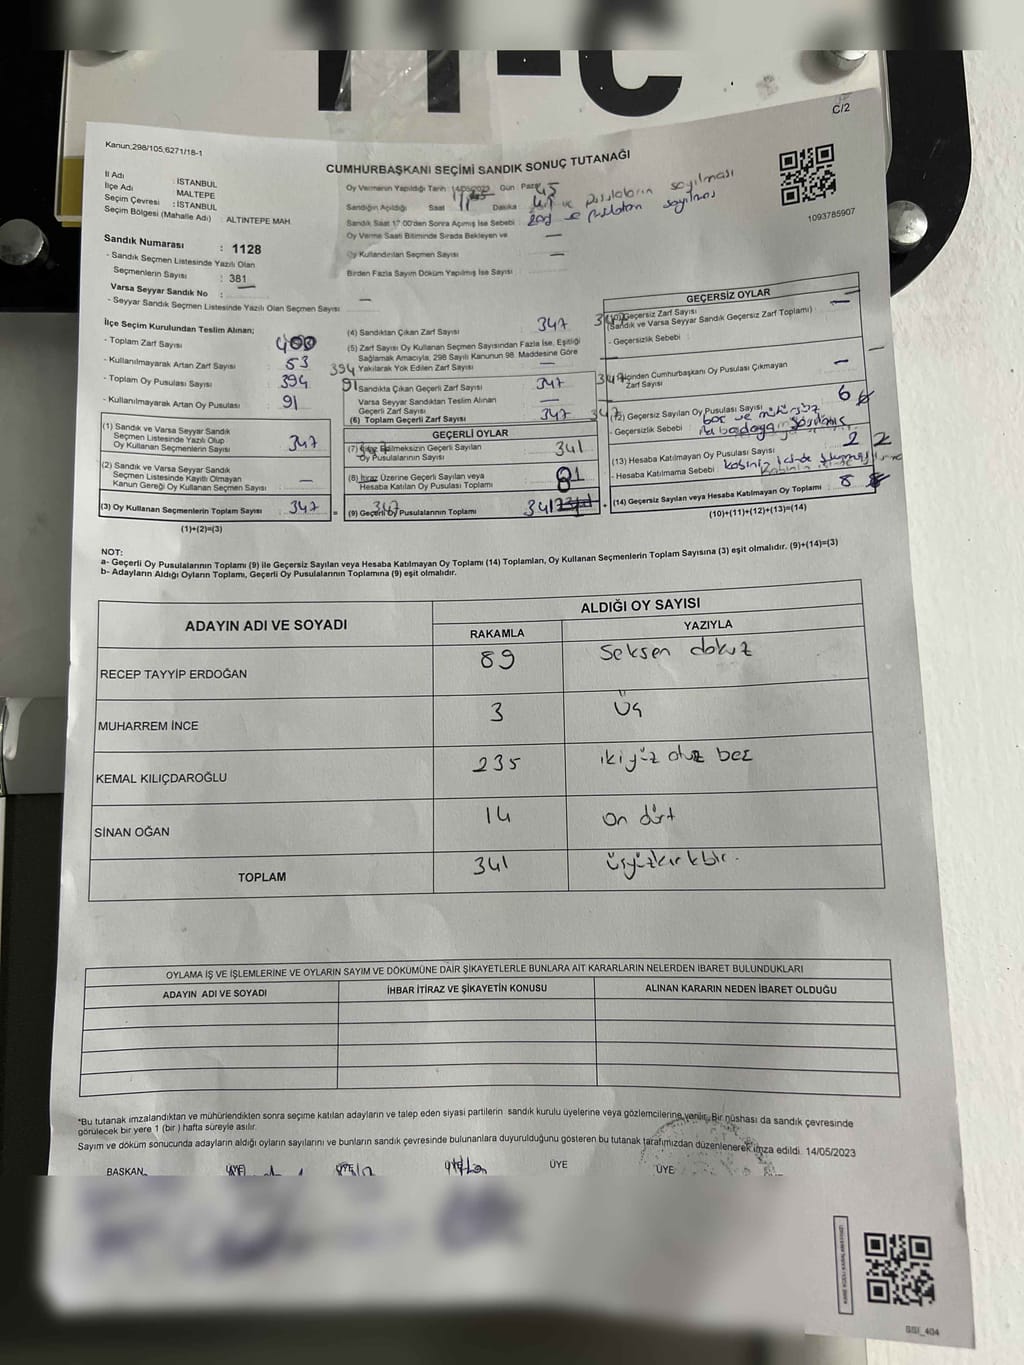 11-C
C/2
Kanun;298/105,6271/18-1
CUMHURBAŞKANI SEÇİMİ SANDIK SONUÇ TUTANAĞI
İl Adı : İSTANBUL
İlçe Adı : MALTEPE
Seçim Çevresi : İSTANBUL
Seçim Bölgesi (Mahalle Adı) : ALTINTEPE MAH.
Oy Vermenin Yapıldığı Tarih : 14/05/2023 Gün : Pazar
Sandığın Açıldığı Saat : 17 Dakika : 45
Sandık Saat 17:00'den Sonra Açımış İse Sebebi : zarf ve pusulaların sayılması
Oy Verme Saati Bitiminde Sırada Bekleyen ve —
Oy Kullandırılan Seçmen Sayısı —
Birden Fazla Sayım Döküm Yapılmış İse Sayısı
1093785907
Sandık Numarası : 1128
- Sandık Seçmen Listesinde Yazılı Olan
Seçmenlerin Sayısı : 381
Varsa Seyyar Sandık No :
- Seyyar Sandık Seçmen Listesinde Yazılı Olan Seçmen Sayısı : —
İlçe Seçim Kurulundan Teslim Alınan;
- Toplam Zarf Sayısı 400
- Kullanılmayarak Artan Zarf Sayısı 53
- Toplam Oy Pusulası Sayısı 394
- Kullanılmayarak Artan Oy Pusulası 91
(1) Sandık ve Varsa Seyyar Sandık
Seçmen Listesinde Yazılı Olup
Oy Kullanan Seçmenlerin Sayısı 347
(2) Sandık ve Varsa Seyyar Sandık
Seçmen Listesinde Kayıtlı Olmayan
Kanun Gereği Oy Kullanan Seçmen Sayısı —
(3) Oy Kullanan Seçmenlerin Toplam Sayısı 347
(1)+(2)=(3)
(4) Sandıktan Çıkan Zarf Sayısı 347
(5) Zarf Sayısı Oy Kullanan Seçmen Sayısından Fazla İse, Eşitliği
Sağlamak Amacıyla, 298 Sayılı Kanunun 98. Maddesine Göre
394 Yakılarak Yok Edilen Zarf Sayısı —
91 Sandıkta Çıkan Geçerli Zarf Sayısı 347
Varsa Seyyar Sandıktan Teslim Alınan
Geçerli Zarf Sayısı —
(6) Toplam Geçerli Zarf Sayısı 347
GEÇERLİ OYLAR
(7) İtiraz Edilmeksizin Geçerli Sayılan
Oy Pusulalarının Sayısı 341
(8) İtiraz Üzerine Geçerli Sayılan veya
Hesaba Katılan Oy Pusulası Toplamı
(9) Geçerli Oy Pusulalarının Toplamı 341
GEÇERSİZ OYLAR
(10) Geçersiz Zarf Sayısı —
(Sandık ve Varsa Seyyar Sandık Geçersiz Zarf Toplamı)
- Geçersizlik Sebebi : —
347 İçinden Cumhurbaşkanı Oy Pusulası Çıkmayan —
Zarf Sayısı
347 (12) Geçersiz Sayılan Oy Pusulası Sayısı 6
- Geçersizlik Sebebi : boş ve mühürsüz
(13) Hesaba Katılmayan Oy Pusulası Sayısı 2 2
- Hesaba Katılmama Sebebi :
(14) Geçersiz Sayılan veya Hesaba Katılmayan Oy Toplamı 8
(10)+(11)+(12)+(13)=(14)
NOT:
a- Geçerli Oy Pusulalarının Toplamı (9) ile Geçersiz Sayılan veya Hesaba Katılmayan Oy Toplamı (14) Toplamları, Oy Kullanan Seçmenlerin Toplam Sayısına (3) eşit olmalıdır. (9)+(14)=(3)
b- Adayların Aldığı Oyların Toplamı, Geçerli Oy Pusulalarının Toplamına (9) eşit olmalıdır.
ADAYIN ADI VE SOYADI
ALDIĞI OY SAYISI
RAKAMLA YAZIYLA
RECEP TAYYİP ERDOĞAN 89 Seksen dokuz
MUHARREM İNCE 3 Üç
KEMAL KILIÇDAROĞLU 235 ikiyüz otuz beş
SİNAN OĞAN 14 on dört
TOPLAM 341 üçyüzkırkbir.
OYLAMA İŞ VE İŞLEMLERİNE VE OYLARIN SAYIM VE DÖKÜMÜNE DAİR ŞİKAYETLERLE BUNLARA AİT KARARLARIN NELERDEN İBARET BULUNDUKLARI
ADAYIN ADI VE SOYADI İHBAR İTİRAZ VE ŞİKAYETİN KONUSU ALINAN KARARIN NEDEN İBARET OLDUĞU
*Bu tutanak imzalandıktan ve mühürlendikten sonra seçime katılan adayların ve talep eden siyasi partilerin sandık kurulu üyelerine veya gözlemcilerine verilir. Bir nüshası da sandık çevresinde
görülecek bir yere 1 (bir) hafta süreyle asılır.
Sayım ve döküm sonucunda adayların aldığı oyların sayılarını ve bunların sandık çevresinde bulunanlara duyurulduğunu gösteren bu tutanak tarafımızdan düzenlenerek imza edildi. 14/05/2023
BAŞKAN ÜYE ÜYE ÜYE ÜYE ÜYE
GSI_404